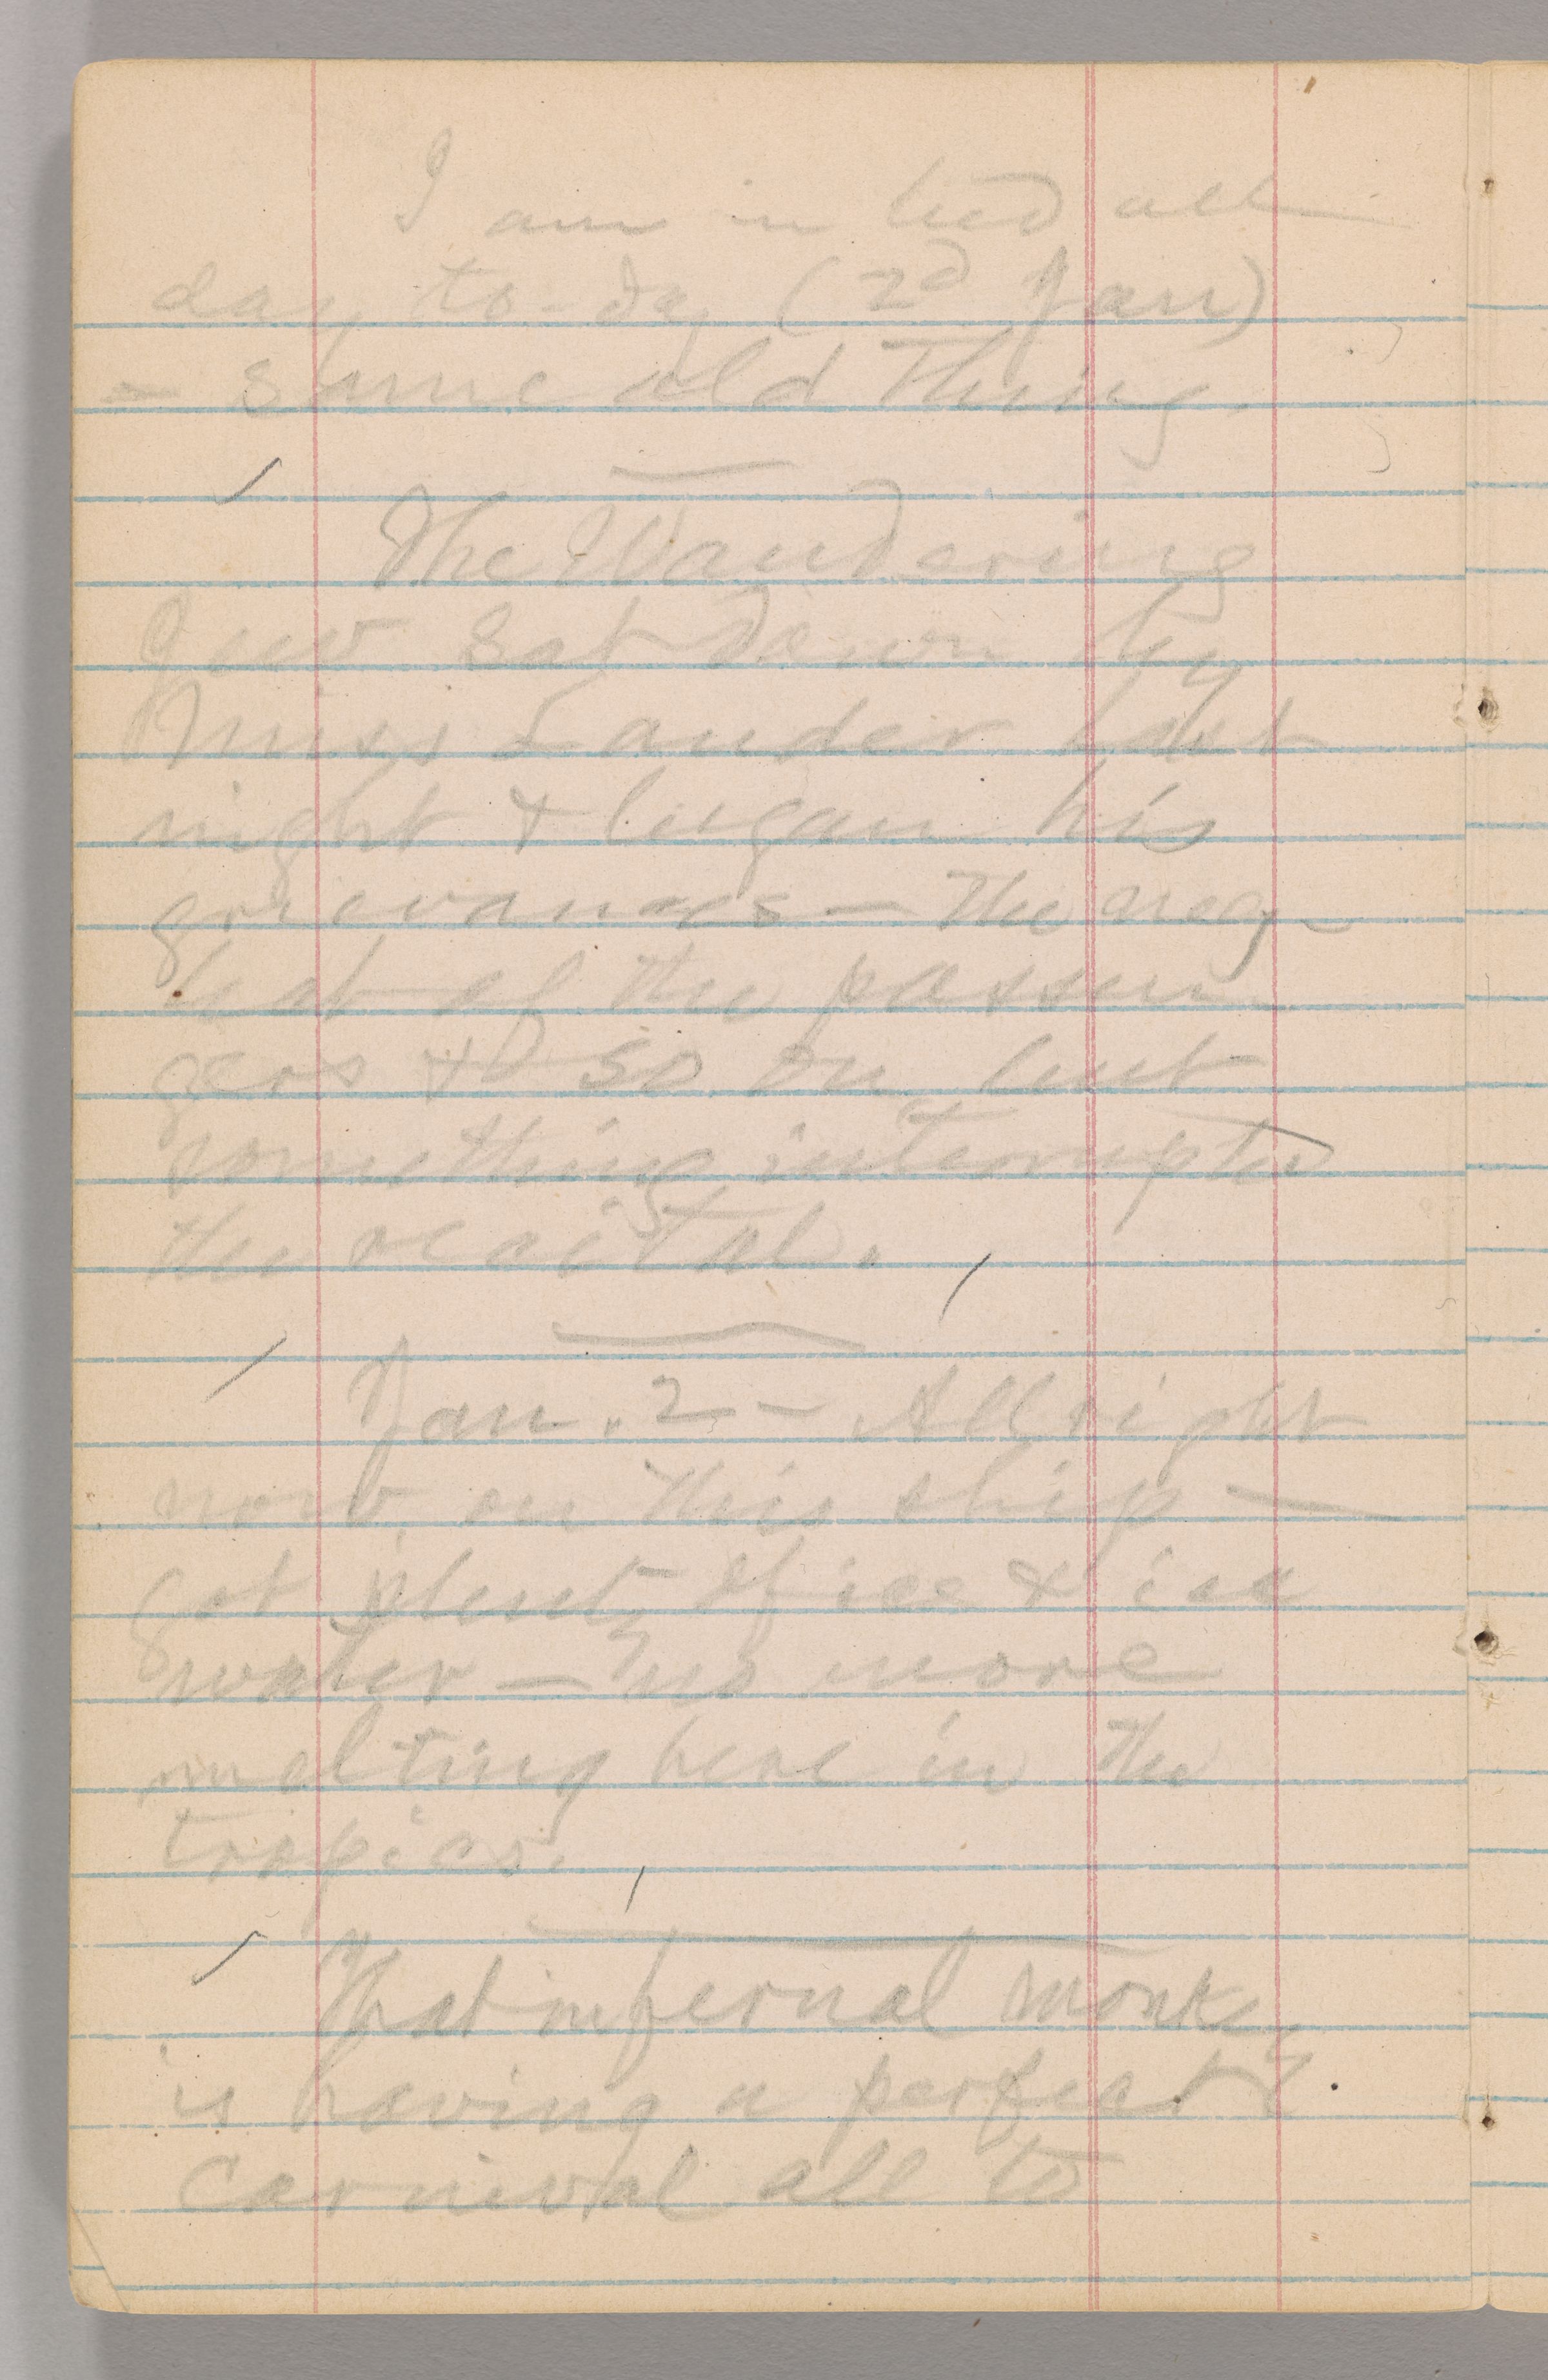 I am in bed all
day to-day (2d Jan)
— same old thing.
The Wandering
Jew sat down by
Miss Lander last
night & began his
grievances — the neg-
lect of the passen-
gers & so on but
something interrupted
the recital.
Jan. 2 — All right
now, on this ship —
got plenty of ice & ice
water — no more
melting here in the
tropics.
That infernal monkey
is having a perfect
carnival all to